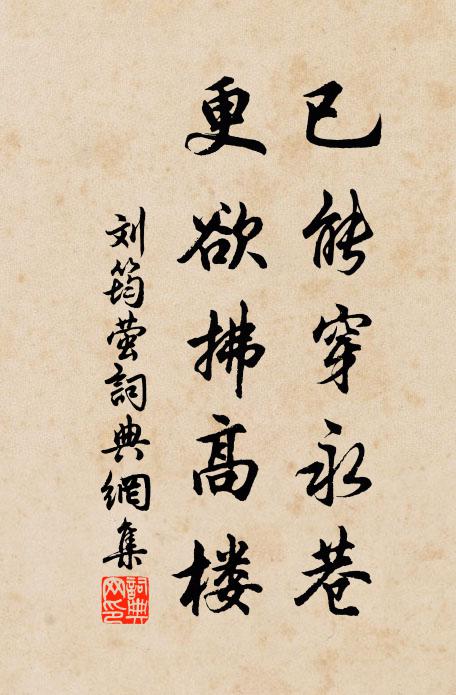 已能穿永巷
更欲拂高楼
刘筠萤詞典網集
詞典网印